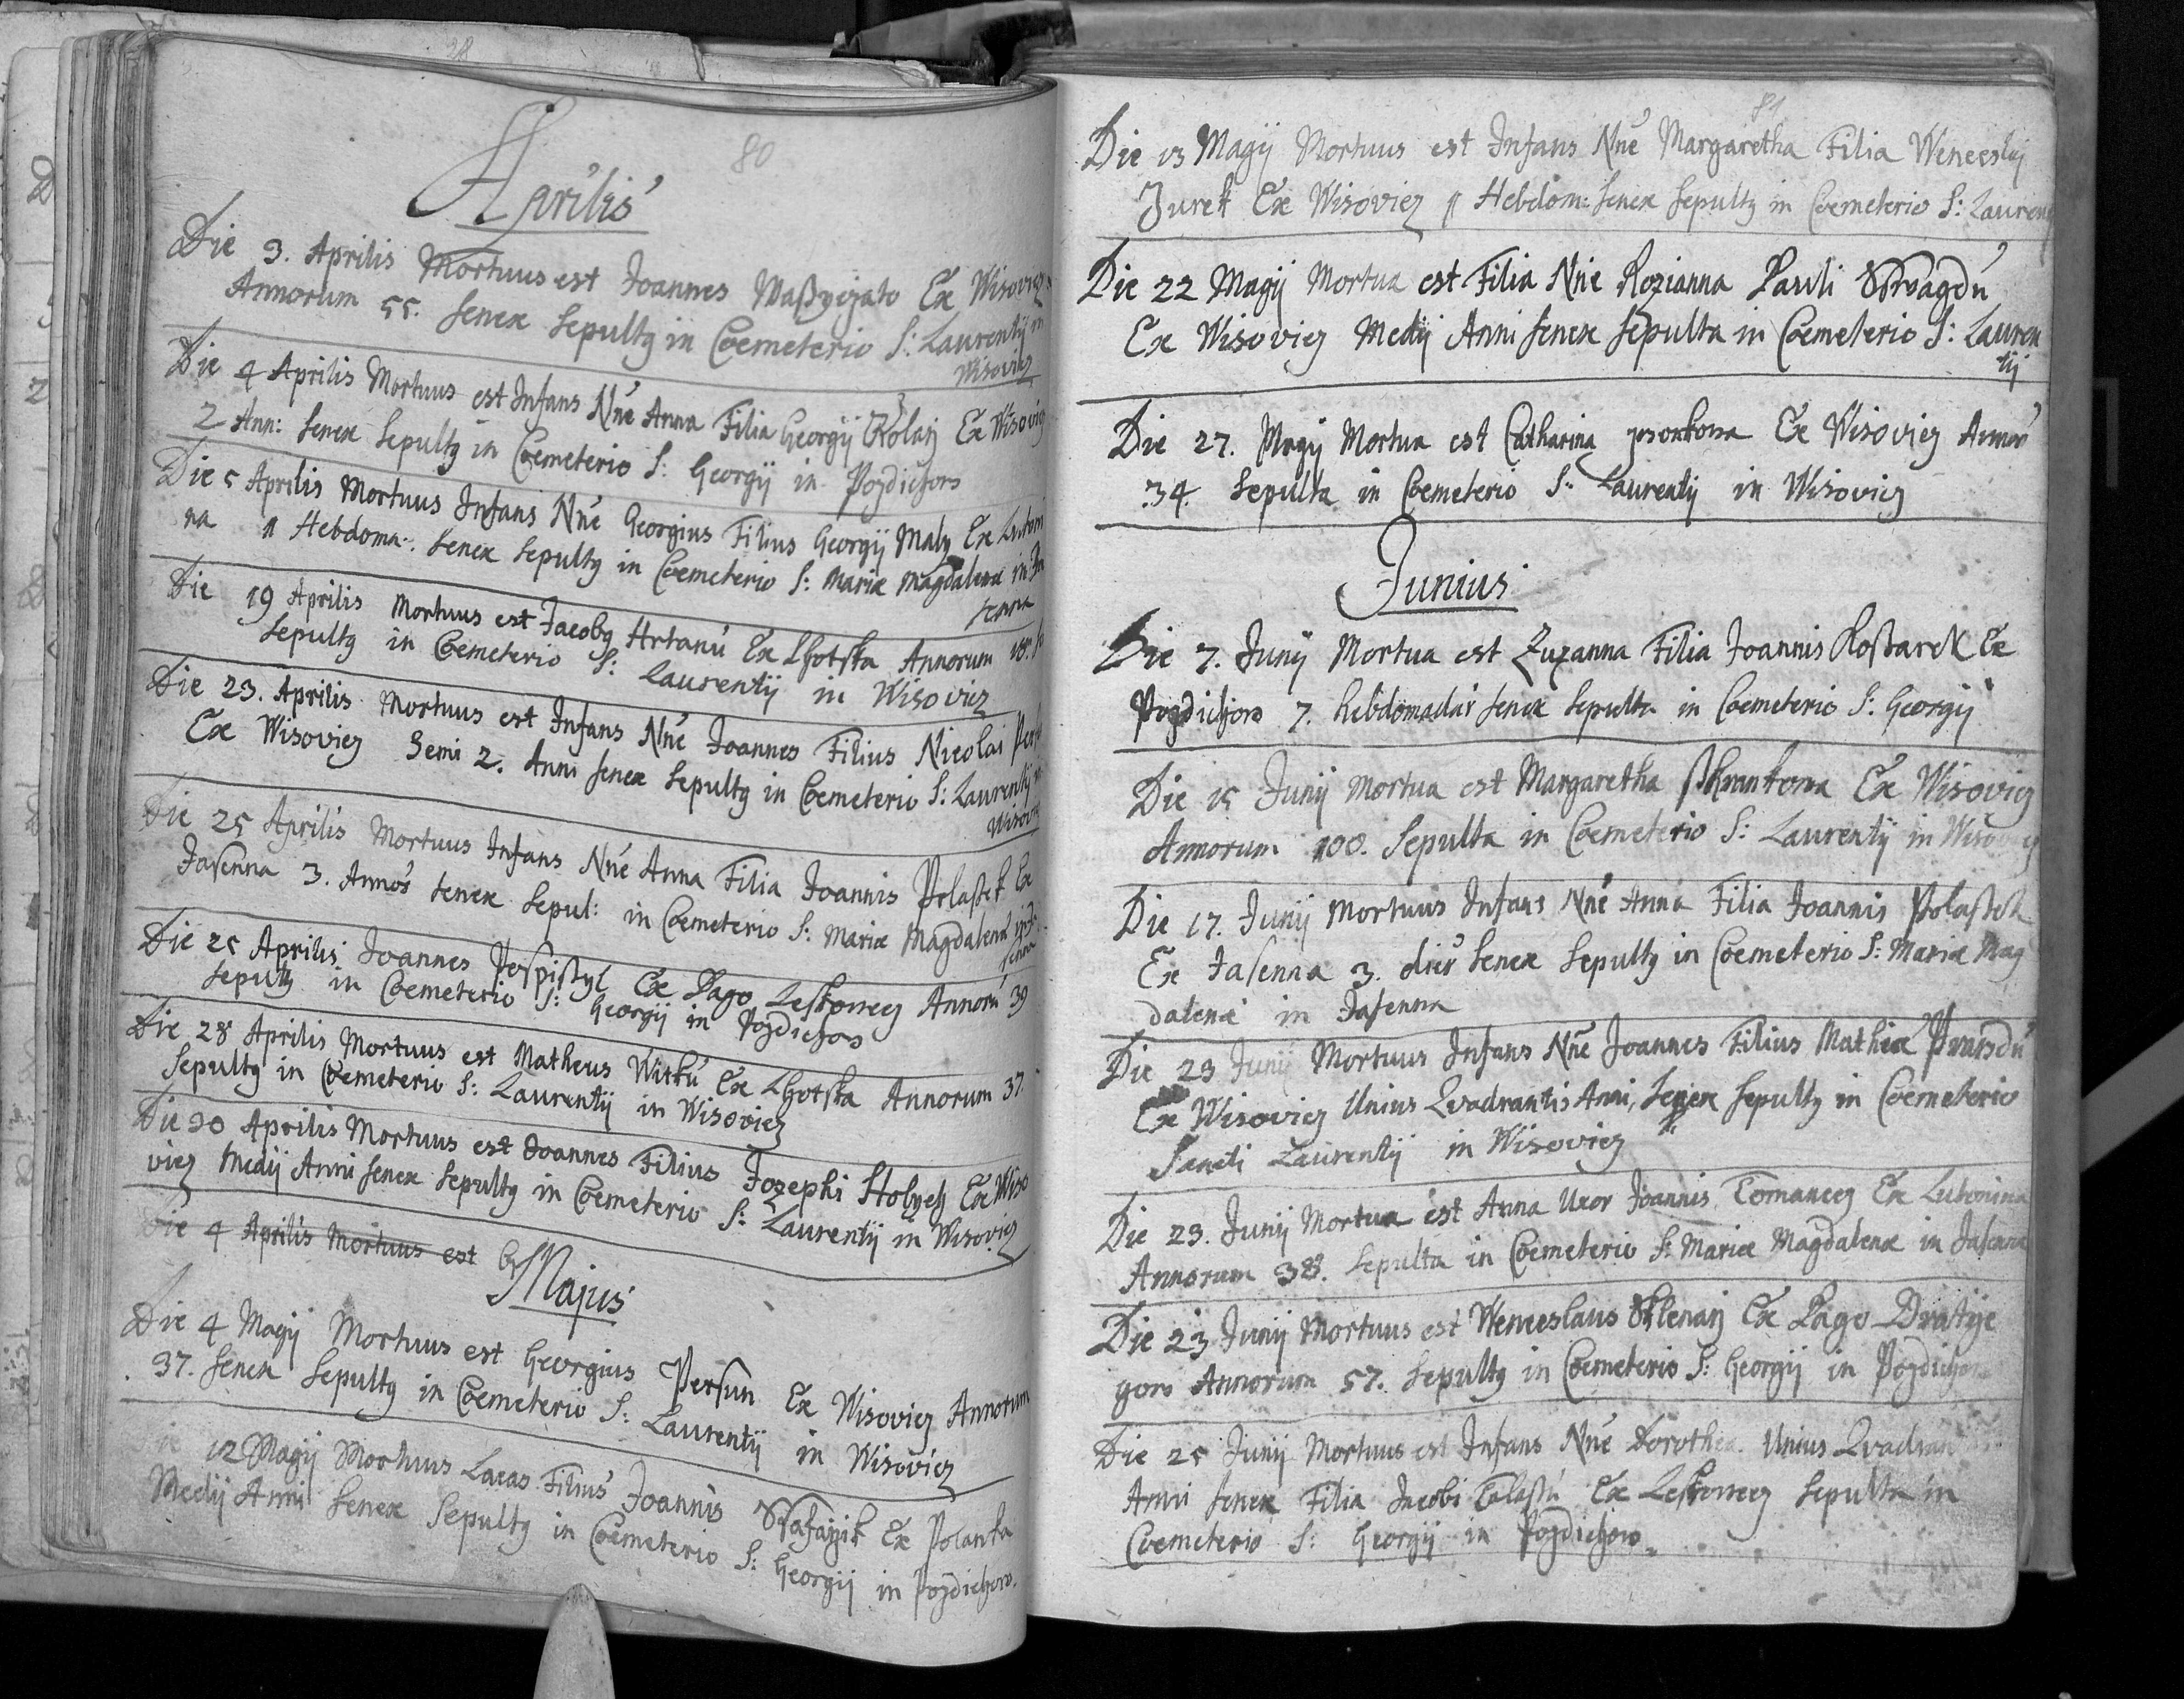 80
Aprilis
Die 3. Aprilis Mortuus est Joannes Ex Wisoviez
Annorum 55. senex sepultq in Coemeterio S: Laurentij in
Wisoviez
Die 4 Aprilis Mortuus est Infans Nñe Anna Filia Georgij Kolarz Ex Wisoviez
2 Ann: senex sepultq in Coemeterio S: Georgij in Pozdiehow
Die 5 Aprilis Mortuus Infans Nñe Georgius Filius Georgij Maly Ex Lutoni
na 11 Hebdoma: senex sepultq in Coemeterio S: Mariæ Magdalenæ in Ja
senna
Die 19 Aprilis Mortuus est Jacobq Hrtanú Ex Lhotska Annorum 18.
sepultq in Coemeterio S: Laurentij in Wisoviez
Die 23. Aprilis Mortuus est Infans Nñe Joannes Filius Nicolai
Ex Wisoviez Semi 2. Anni senex sepultq in Coemeterio S: Laurentij in
Wisoviez
Die 25 Aprilis Mortuus Infans Nñe Anna Filia Joannis Polaßek Ex
Jasenna 3. Annos senex sepul: in Coemeterio S: Mariæ Magdalenæ in Ja
senna
Die 25 Aprilis Joannes Pospißyl Ex Pago Leskowecz Annorú 39
sepultq in Coemeterio S: Georgij in Pozdiehow
Die 28 Aprilis Mortuus est Matheus Witkú Ex Lhotska Annorum 37.
sepultq in Coemeterio S: Laurentij in Wisoviez
Die 30 Aprilis Mortuus est Joannes Filius Jozephi Ex Wiso
viez Medij Anni senex sepultq in Coemeterio S: Laurentij in Wisoviez
Die 4 Aprilis Mortuus est
Majus
Die 4 Magij Mortuus est Georgius Persun Ex Wisoviez Annorum
37. senex sepultq in Coemeterio S: Laurentij in Wisoviez
Die 12 Magij Mortuus Lucas Filius Joannis Ex Polanka
Medij Anni senex sepultq in Coemeterio S: Georgij in Pozdiehow.
81
Die 13 Magij Mortuus est Infans Nñe Margaretha Filia Wenceslaj
Jurek Ex Wisoviez 11 Hebdom: senex sepultq in Coemeterio S: Lauren
Die 22 Magij Mortua est Filia Nñe Rozianna Pauli
Ex Wisoviez Medij Anni senex sepulta in Coemeterio S: Lauren
tij
Die 27. Magij Mortua est Catharina Ex Wisoviez Annoró
34. sepulta in Coemeterio S: Laurentij in Wisoviez
Junius
Die 7. Junij Mortua est Zuzanna Filia Joannis Koßarek Ex
Pozdiehow 7. hebdomadar senex sepulta in Coemeterio S: Georgij
Die 15 Junij Mortua est Margaretha Ex Wisoviez
Annorum 100. sepulta in Coemeterio S: Laurentij in Wisoviez
Die 17. Junij Mortuus Infans Nñe Anna Filia Joannis Polaßek
Ex Jasenna 3. senex sepultq in Coemeterio S: Mariæ Mag
dalenæ in Jasenna
Die 23 Junij Mortuus Infans Nñe Joannes Filius Mathiæ
Ex Wisoviez Unius Qvadrantis Anni, senex sepultq in Coemeterio
Sancti Laurentij in Wisoviez
Die 23. Junij Mortua est Anna Uxor Joannis Tomanecz Ex Lutonina
Annorum 38. sepulta in Coemeterio S: Mariæ Magdalenæ in Jasenna
Die 23 Junij Mortuus est Wenceslaus Sklenarz Ex Pago Dratije
gow Annorum 57. sepultq in Coemeterio S: Georgij in Pozdiehow
Die 25 Junij Mortuus est Infans Nñe Dorothea Unius Qvadran
Anni senex Filia Jacobi Talaßú Ex Leskowecz sepulta in
Coemeterio S: Georgij in Pozdiehow.